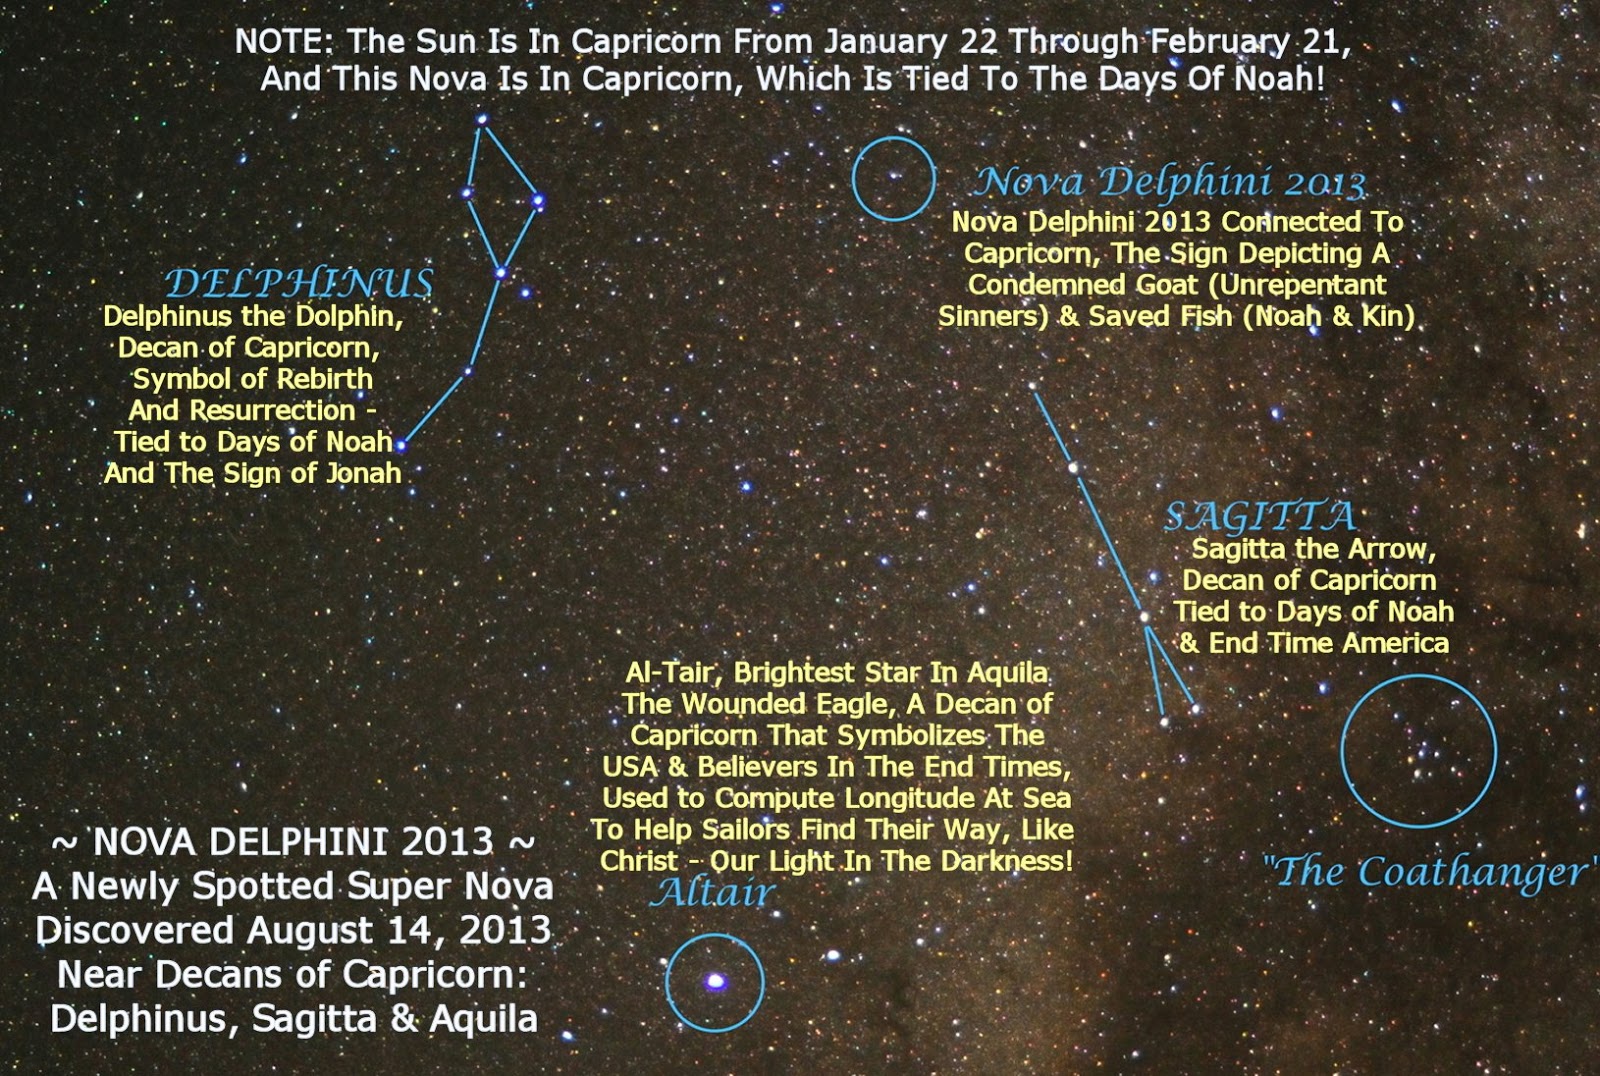 NOTE: The Sun Is In Capricorn From January 22 Through February 21,
And This Nova Is In Capricorn, Which Is Tied To The Days Of Noah!
Nova Delphini 2013
Nova Delphini 2013 Connected To
Capricorn, The Sign Depicting A
Condemned Goat (Unrepentant
Sinners) & Saved Fish (Noah & Kin)
DELPHINUS
Delphinus the Dolphin,
Decan of Capricorn,
Symbol of Rebirth
And Resurrection -
Tied to Days of Noah
And The Sign of Jonah
SAGITTA
Sagitta the Arrow,
Decan of Capricorn
Tied to Days of Noah
& End Time America
Al-Tair, Brightest Star In Aquila
The Wounded Eagle, A Decan of
Capricorn That Symbolizes The
USA & Believers In The End Times,
Used to Compute Longitude At Sea
To Help Sailors Find Their Way, Like
Christ - Our Light In The Darkness!
Altair
"The Coathanger"
~ NOVA DELPHINI 2013 ~
A Newly Spotted Super Nova
Discovered August 14, 2013
Near Decans of Capricorn:
Delphinus, Sagitta & Aquila